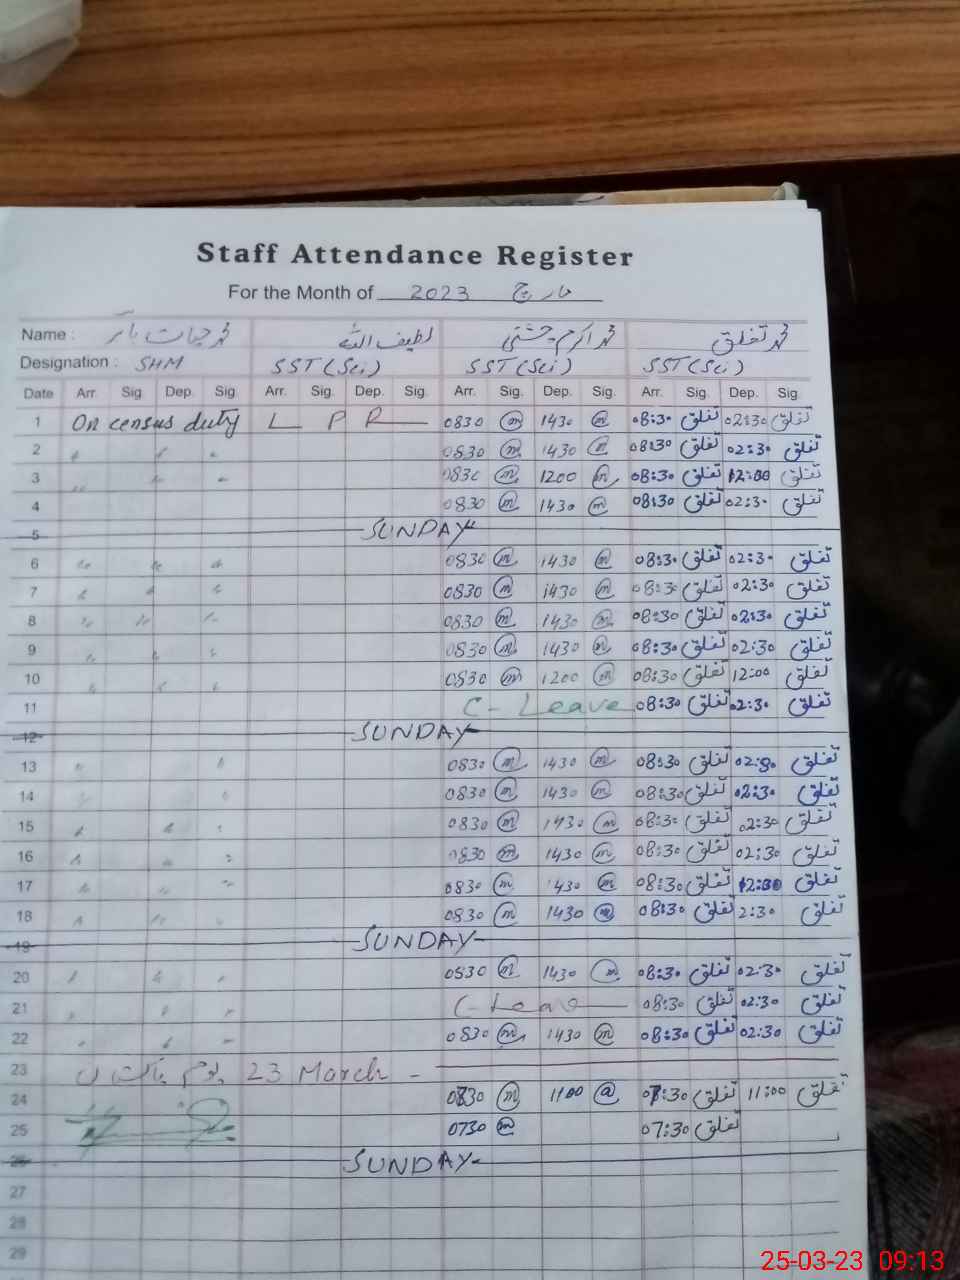 Staff Attendance Register
For the Month of 2023 مارچ
Name : محمد حیات لطیف اللہ محمد اکرم چشتی محمد تغلق
Designation : SHM SST (Sci) SST (Sci) SST (Sci)
Date Arr. Sig Dep. Sig. Arr. Sig. Dep. Sig. Arr. Sig. Dep. Sig. Arr. Sig. Dep. Sig.
1 On census duty L P R 0830 m 1430 m 08:30 تغلق 02:30 تغلق
2 " " " 0830 m 1430 m 08:30 تغلق 02:30 تغلق
3 " " " 0830 m 1200 m 08:30 تغلق 12:00 تغلق
4 0830 m 1430 m 08:30 تغلق 02:30 تغلق
5 SUNDAY
6 " " " 0830 m 1430 m 08:30 تغلق 02:30 تغلق
7 " " " 0830 m 1430 m 08:30 تغلق 02:30 تغلق
8 " " " 0830 m 1430 m 08:30 تغلق 02:30 تغلق
9 " " " 0830 m 1430 m 08:30 تغلق 02:30 تغلق
10 " " " 0830 m 1200 m 08:30 تغلق 12:00 تغلق
11 C- Leave 08:30 تغلق 02:30 تغلق
12 SUNDAY
13 " " 0830 m 1430 m 08:30 تغلق 02:30 تغلق
14 " " 0830 m 1430 m 08:30 تغلق 02:30 تغلق
15 " " " 0830 m 1430 m 08:30 تغلق 02:30 تغلق
16 " " " 0830 m 1430 m 08:30 تغلق 02:30 تغلق
17 " " " 0830 m 1430 m 08:30 تغلق 12:00 تغلق
18 " " " 0830 m 1430 m 08:30 تغلق 2:30 تغلق
19 SUNDAY
20 " " " 0830 m 1430 m 08:30 تغلق 02:30 تغلق
21 " " " C- Leave 08:30 تغلق 02:30 تغلق
22 " " " 0830 m 1430 m 08:30 تغلق 02:30 تغلق
23 یوم پاکستان 23 March -
24 0730 m 1100 m 07:30 تغلق 11:00 تغلق
25 0730 m 07:30 تغلق
26 SUNDAY
27
28
29
25-03-23 09:13